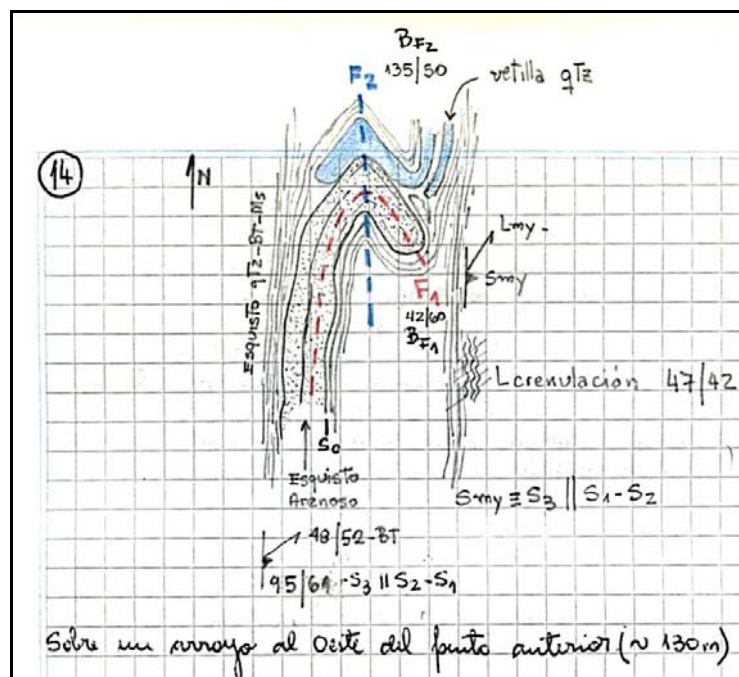 BF2
135/50
F2
vetilla qTz
14
N
Esquisto qTz-BT-Ms
Lmy
Smy
F1
42/60
BF1
Lcrenulación 47/42
S0
Esquisto
Arenoso
Smy ≡ S3 || S1-S2
48/52-BT
95/61-S3 || S2-S1
Sobre un arroyo al Oeste del punto anterior (~ 130m)